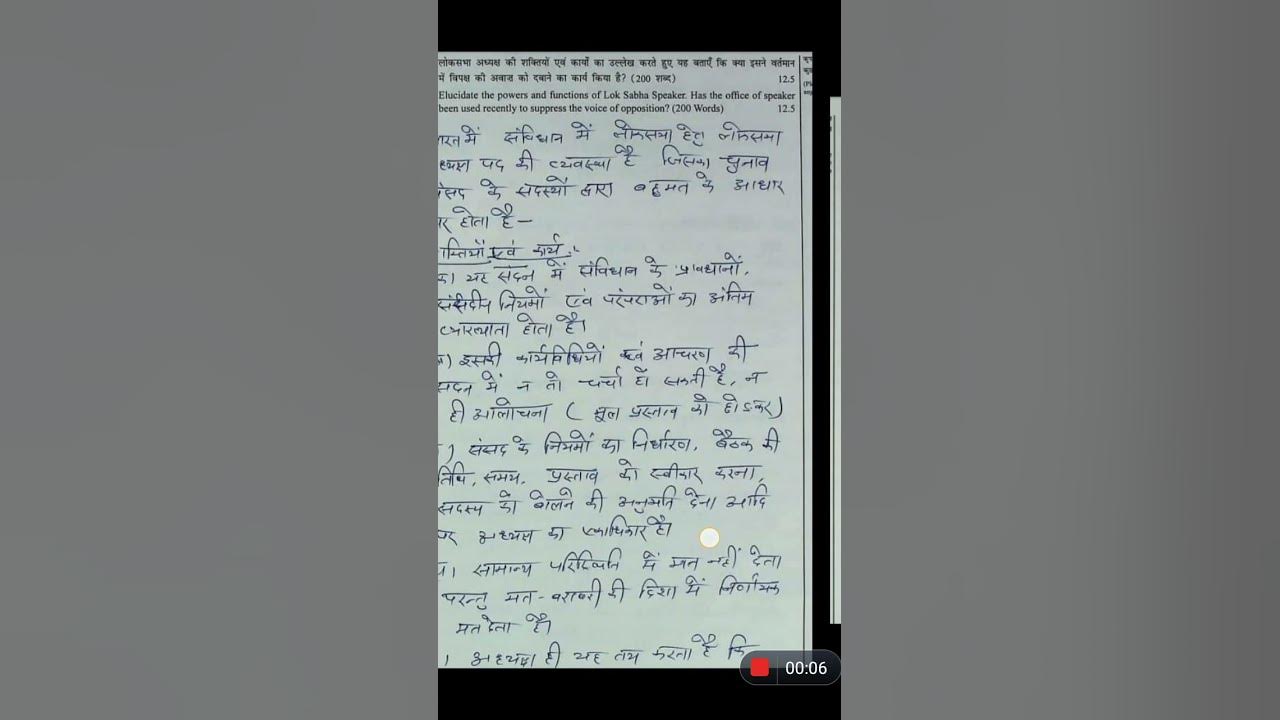 लोकसभा अध्यक्ष की शक्तियों एवं कार्यों का उल्लेख करते हुए यह बताएँ कि क्या इसने वर्तमान
में विपक्ष की आवाज को दबाने का कार्य किया है? (200 शब्द) 12.5
Elucidate the powers and functions of Lok Sabha Speaker. Has the office of speaker
been used recently to suppress the voice of opposition? (200 Words) 12.5
में संविधान में लोकसभा हेतु लोकसभा
पद की व्यवस्था है जिसका चुनाव
के सदस्यों द्वारा बहुमत के आधार
होता है –
एवं कार्य :-
यह सदन में संविधान के प्रावधानों,
नियमों एवं परंपराओं का अंतिम
व्याख्याता होता है।
इसकी कार्यविधियों एवं आचरण की
सदन में न तो चर्चा हो सकती है, न
ही आलोचना ( मूल प्रस्ताव को छोड़कर)
) संसद के नियमों का निर्धारण, बैठक की
तिथि, समय, प्रस्ताव को स्वीकार करना,
सदस्य को बोलने की अनुमति देना आदि
पर अध्यक्ष का एकाधिकार है।
सामान्य परिस्थिति में मत नहीं देता
परन्तु मत-बराबरी की दिशा में निर्णायक
मत देता है।
अध्यक्ष ही यह तय करता है कि
00:06